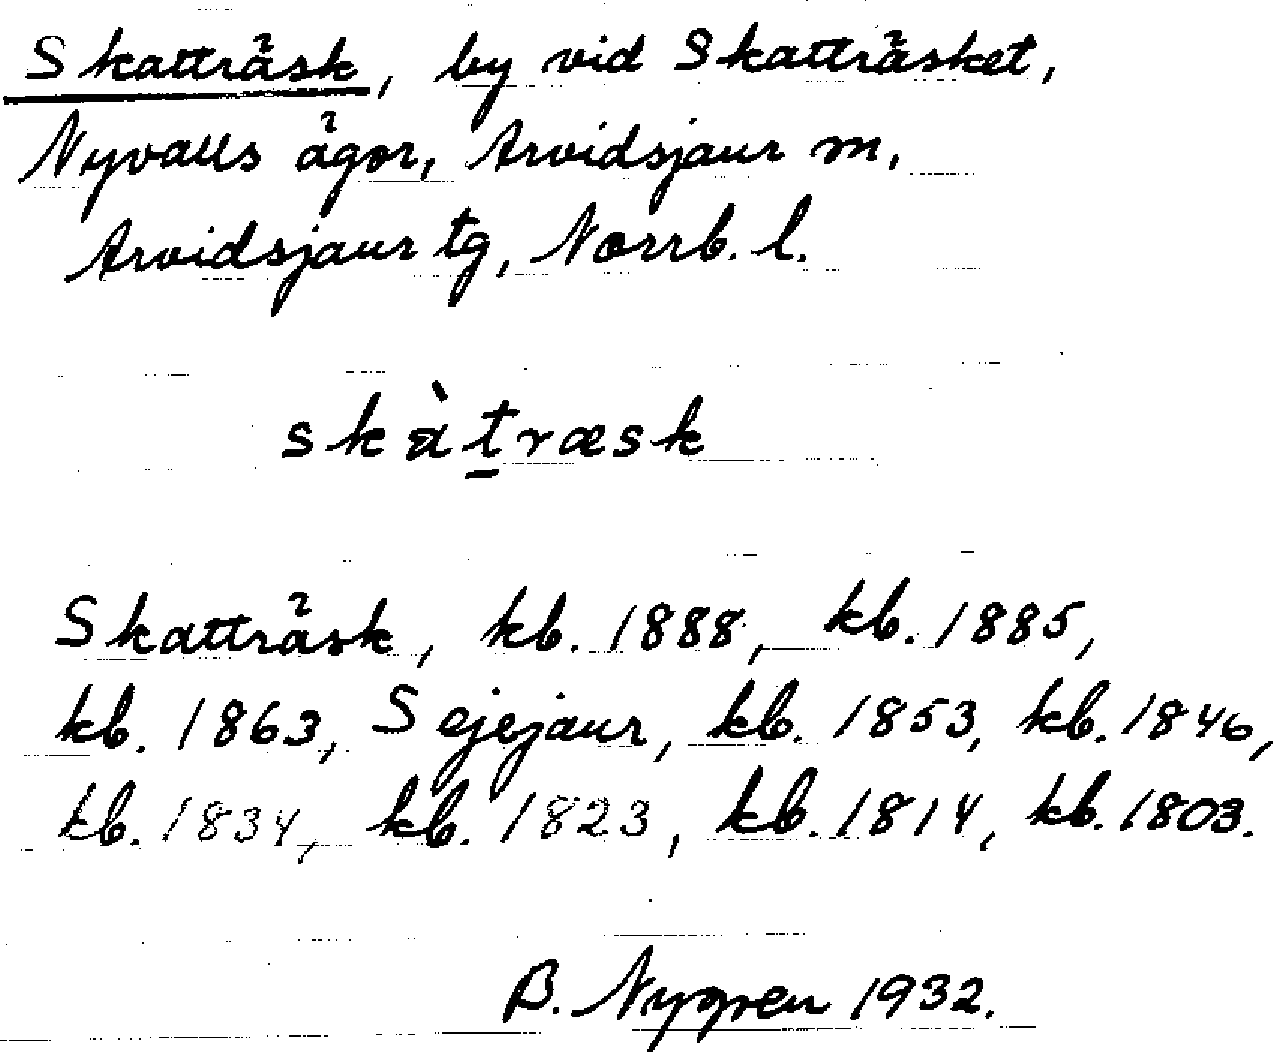 Skatträsk, by vid Skatträsket,
Nyvalls ägor, Arvidsjaur m,
Arvidsjaur tg, Norrb. l.
skàt̠ræsk
Skatträsk, kb. 1888, kb. 1885,
kb. 1863, Sejejaur, kb. 1853, kb. 1846,
kb. 1834, kb. 1823, kb. 1814, kb. 1803.
B. Nygren 1932.